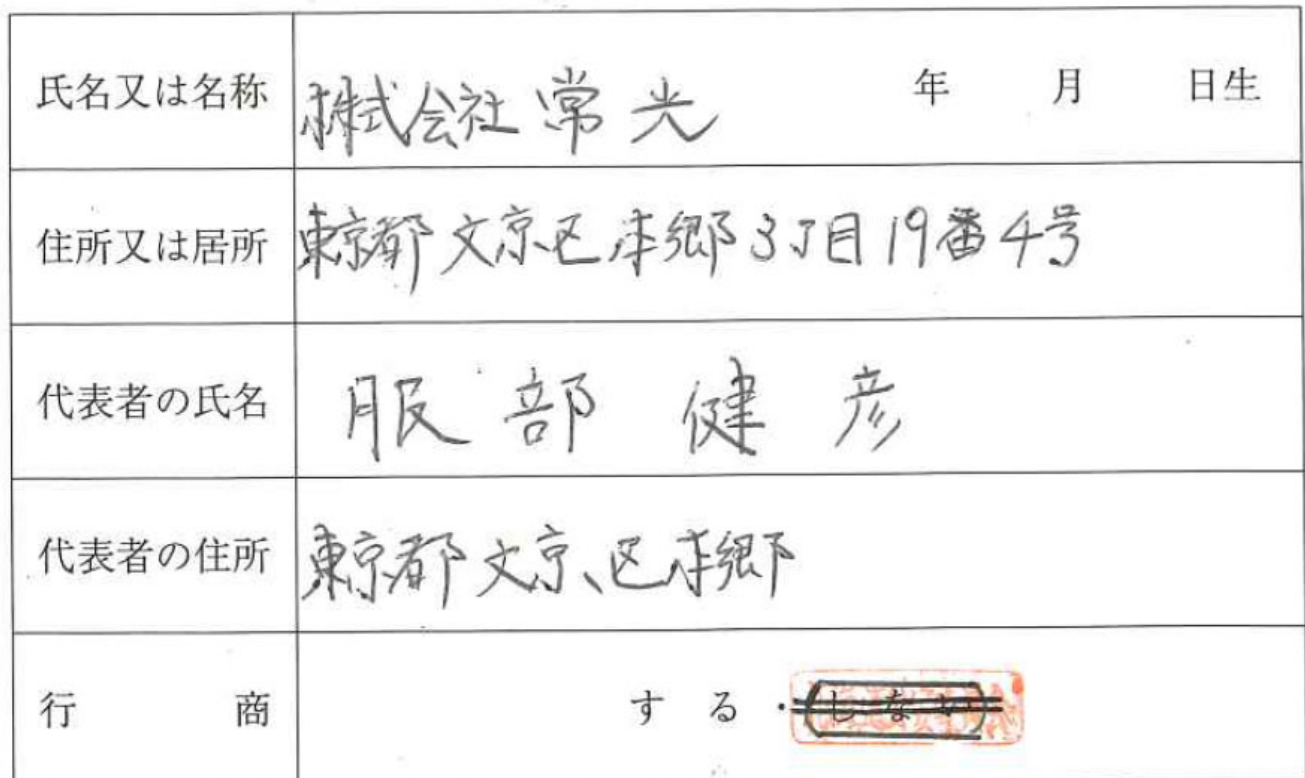 氏名又は名称 株式会社常光 年 月 日生
住所又は居所 東京都文京区本郷3丁目19番4号
代表者の氏名 服部 健彦
代表者の住所 東京都文京区本郷
行商 する・しない